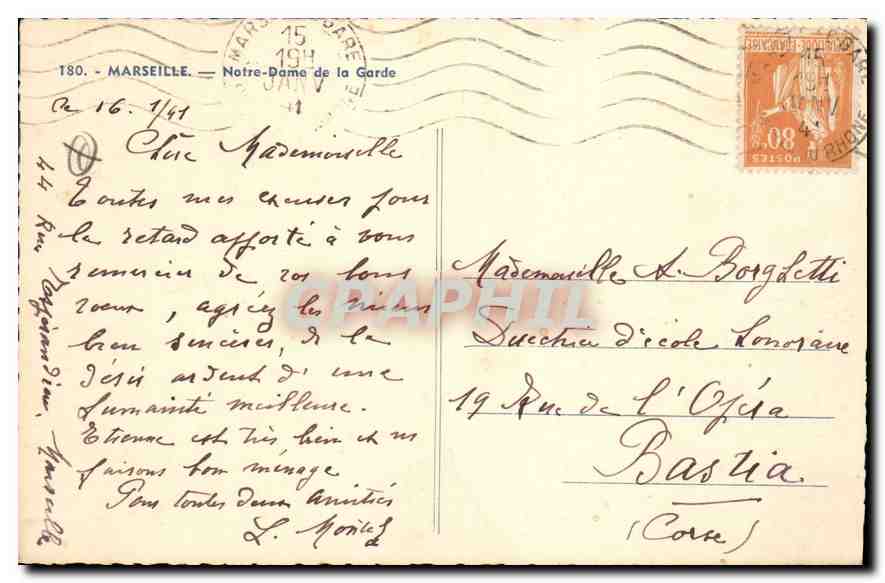 180. - MARSEILLE. — Notre-Dame de la Garde
Le 16. 1/41
Chère Mademoiselle
Toutes mes excuses pour
le retard apporté à vous
remercier de vos bons
voeux, agréez les miens
bien sincères, de la
désir ardent d'une
humanité meilleure.
Etienne est très bien et ns
faisons bon ménage
Pour toutes deux amitiés
44 Rue Marseille
Mademoiselle A. Borghetti
Directrice d'école honoraire
19 Rue de l'Opéra
Bastia
(Corse)
MARS GARE
15
19H
JANV
41
POSTES
80c
RHONE
CPAPHIL